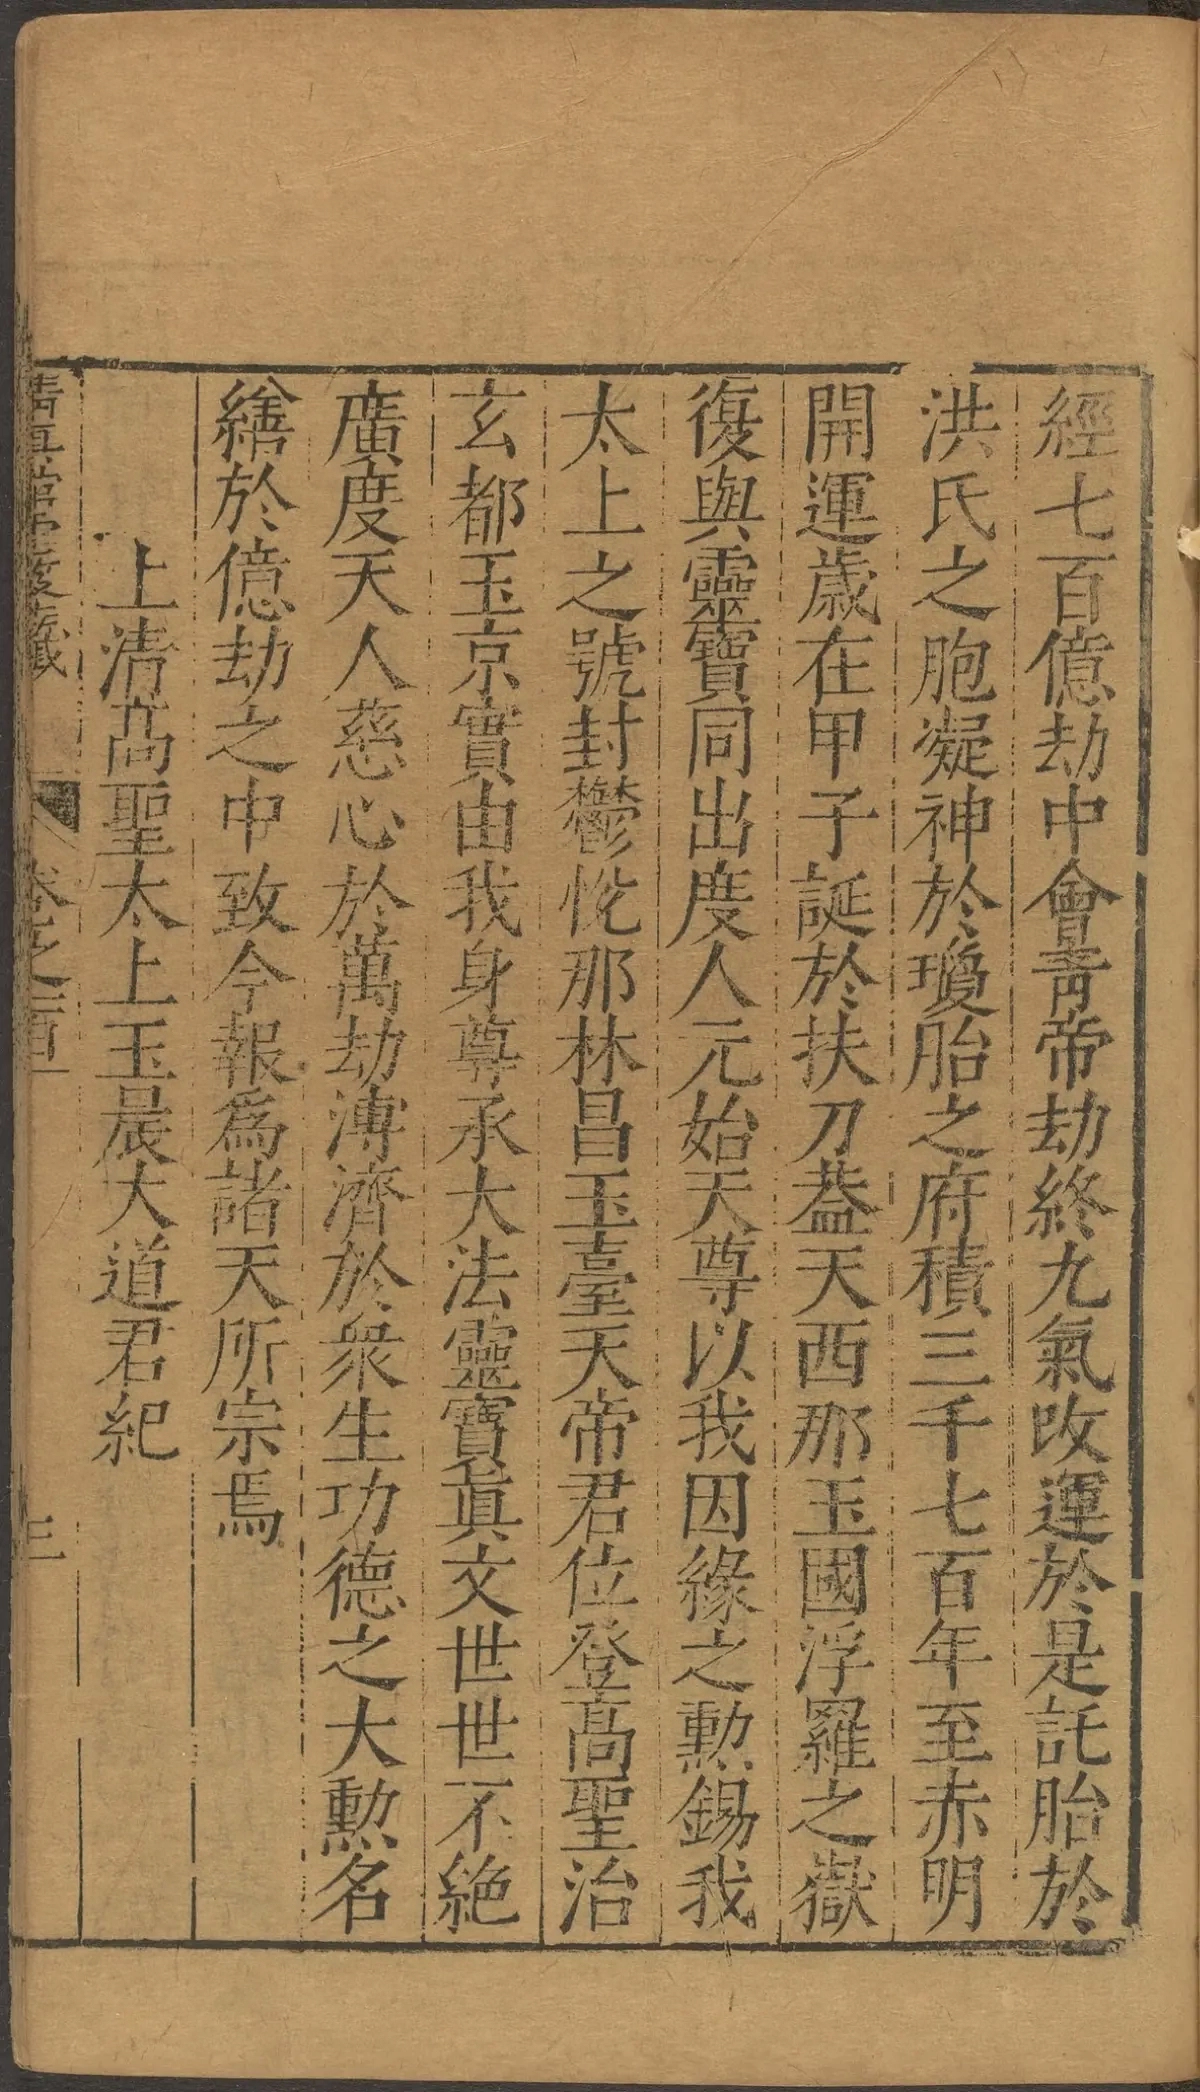 經七百億劫中會靑帝劫終九氣改運於是託胎於
洪氏之胞凝神於瓊胎之府積三千七百年至赤明
開運歲在甲子誕於扶刀葢天西那玉國浮羅之嶽
復與靈寶同出度人元始天尊以我因緣之勳錫我
太上之號封鬱悅那林昌玉臺天帝君位登高聖治
玄都玉京實由我身尊承大法靈寶眞文世世不絶
廣度天人慈心於萬劫溥濟於衆生功德之大勳名
繕於億劫之中致今報爲諸天所宗焉
上清高聖太上玉晨大道君紀
卷之一百一
三